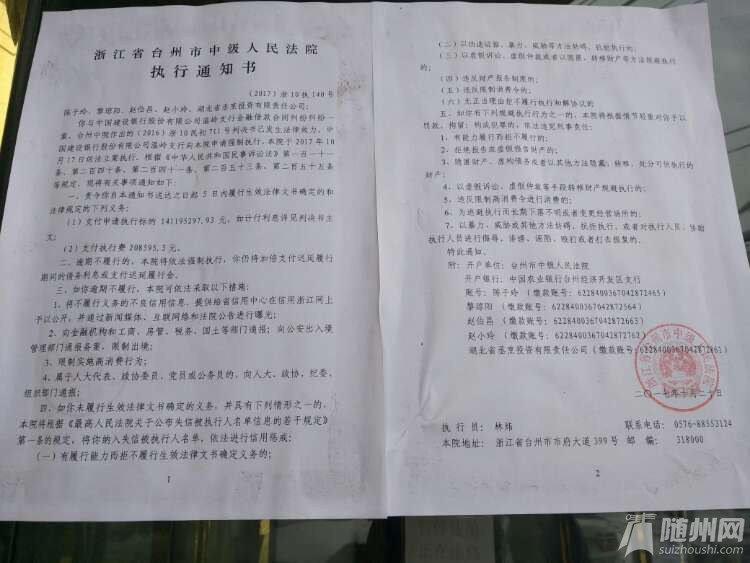 浙江省台州市中级人民法院
执行通知书
（2017）浙10执140号
陈子玲、黎琼阳、赵伯昌、赵小玲、湖北省垩里投资有限责任公司：
你与中国建设银行股份有限公司温岭支行金融借款合同纠纷纠纷一
案，台州中院作出的（2016）浙10民初711号判决书已发生法律效力，中
国建设银行股份有限公司温岭支行向本院申请强制执行，本院于2017年10
月17日依法立案执行。根据《中华人民共和国民事诉讼法》第一百一十一
条、第二百四十条、第二百四十一条、第二百五十三条、第二百五十五条
等规定，现将有关事项通知如下：
一、责令你自本通知书送达之日起5日内履行生效法律文书确定的和
法律规定的下列义务：
（1）支付申请执行标的141195297.93元，如计付利息详见判决书主
文；
（2）支付执行费208595.3元。
二、逾期不履行的，本院将依法强制执行，你仍将加倍支付迟延履行
期间的债务利息或支付迟延履行金。
三、如你逾期不履行，本院可依法采取以下措施：
1、将不履行义务的不良信用信息，提供给省信用中心在信用浙江网上
予以公开，并通过新闻媒体、互联网络和法院公告进行曝光；
2、向金融机构和工商、房管、税务、国土等部门通报；向公安出入境
管理部门通报备案，限制出境；
3、限制实施高消费行为；
4、属于人大代表、政协委员、党员或公务员的，向人大、政协、纪委、
组织部门通报；
四、如你未履行生效法律文书确定的义务，并具有下列情形之一的，
本院将根据《最高人民法院关于公布失信被执行人名单信息的若干规定》
第一条的规定，将你纳入失信被执行人名单，依法进行信用惩戒：
（一）有履行能力而拒不履行生效法律文书确定义务的；
1
（二）以伪造证据、暴力、威胁等方法妨碍、抗拒执行的；
（三）以虚假诉讼、虚假仲裁或者以隐匿、转移财产等方法规避执行
的；
（四）违反财产报告制度的；
（五）违反限制消费令的；
（六）无正当理由拒不履行执行和解协议的
五、如有下列规避执行行为之一的，本院将根据情节轻重对你予以
罚款、拘留；构成犯罪的，依法追究刑事责任：
1、有能力履行而拒不履行的；
2、拒绝报告或虚假报告财产的；
3、隐匿财产、虚构债务或者以其他方法隐藏、转移、处分可供执行的
财产；
4、以虚假诉讼、虚假仲裁等手段转移财产规避执行的；
5、违反限制高消费令进行消费的；
6、为逃避执行而长期下落不明或者变更经营场所的；
7、以暴力、威胁或其他方法妨碍、抗拒执行，或者对执行人员、协助
执行人员进行侮辱、诽谤、诬陷、殴打或者打击报复的。
特此通知。
附：开户单位：台州市中级人民法院
开户银行：中国农业银行台州经济开发区支行
账号：陈子玲（缴款账号：6228400367042872465）
黎琼阳（缴款账号：6228400367042872564）
赵伯昌（缴款账号：6228400367042872663）
赵小玲（缴款账号：6228400367042872762）
湖北省垩里投资有限责任公司（缴款账号：6228400367042872861）
浙江省台州市中级人民法院
二〇一七年十月二十日
执 行 员 林炜 联系电话： 0576-88553124
本院地址： 浙江省台州市市府大道399号 邮 编： 318000
2
随州网
suizhoushi.com